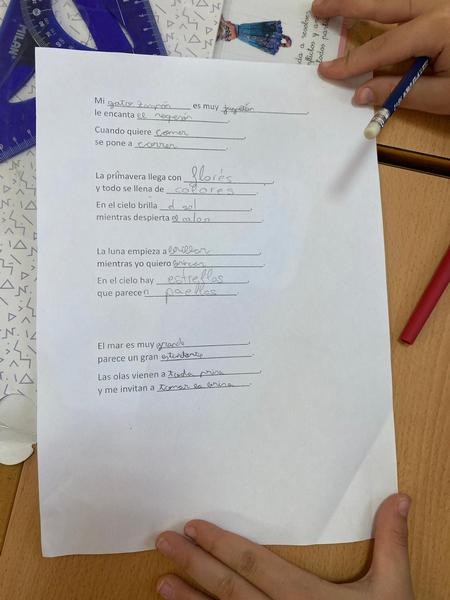 MILAN
Mi gato zampón es muy juguetón
le encanta el
Cuando quiere comer
se pone a correr
La primavera llega con flores
y todo se llena de colores.
En el cielo brilla el sol
mientras despierta
La luna empieza a brillar
mientras yo quiero
En el cielo hay estrellas
que parecen paellas.
El mar es muy grande
parece un gran
Las olas vienen a toda prisa
y me invitan a tomar la brisa